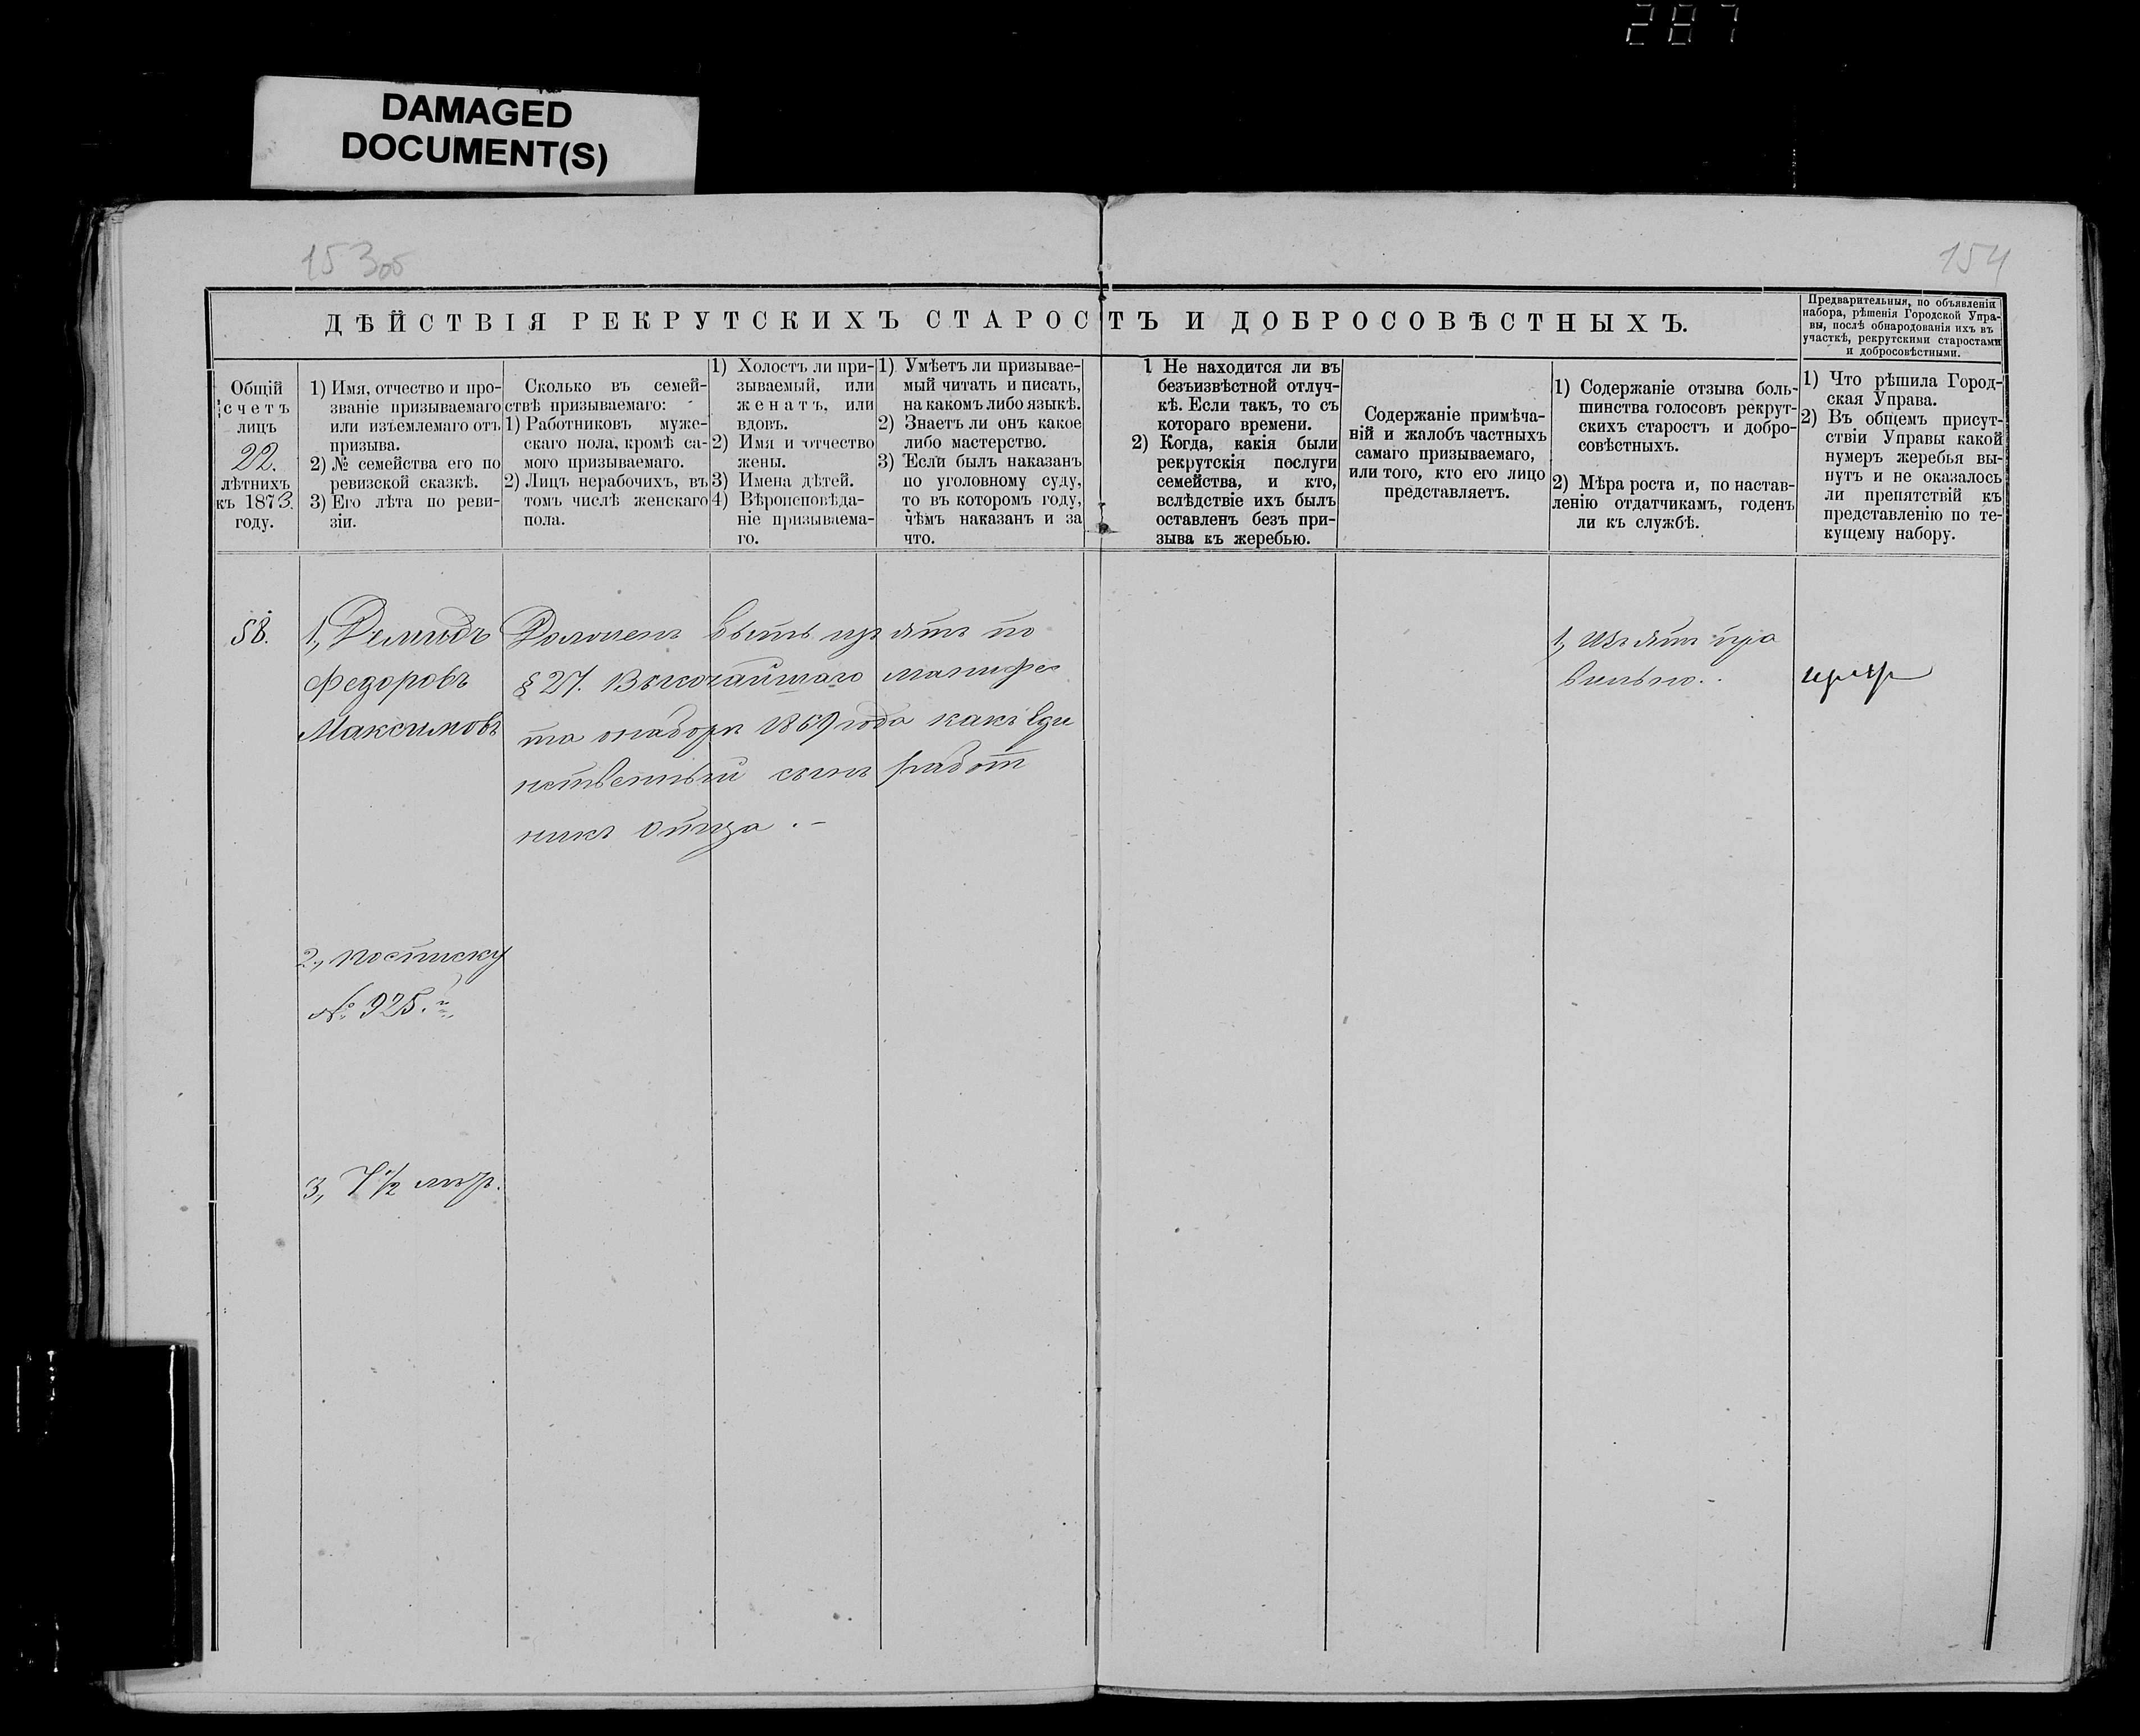 287
DAMAGED
DOCUMENT(S)
153об
154
ДѢЙСТВІЯ РЕКРУТСКИХЪ СТАРОСТЪ И ДОБРОСОВѢСТНЫХЪ.
Предварительныя, по объявленіи
набора, рѣшенія Городской Упра-
вы, послѣ обнародованія ихъ въ
участкѣ, рекрутскими старостами
и добросовѣстными.
Общій
счетъ
лицъ
22.
лѣтнихъ
къ 1873.
году.
1) Имя, отчество и про-
званіе призываемаго
или изъемлемаго отъ
призыва.
2) № семейства его по
ревизской сказкѣ.
3) Его лѣта по реви-
зіи.
Сколько въ семей-
ствѣ призываемаго:
1) Работниковъ муже-
скаго пола, кромѣ са-
мого призываемаго.
2) Лицъ нерабочихъ, въ
томъ числѣ женскаго
пола.
1) Холостъ ли при-
зываемый, или
женатъ, или
вдовъ.
2) Имя и отчество
жены.
3) Имена дѣтей.
4) Вѣроисповѣда-
ніе призываема-
го.
1) Умѣетъ ли призывае-
мый читать и писать,
на какомъ либо языкѣ.
2) Знаетъ ли онъ какое
либо мастерство.
3) Если былъ наказанъ
по уголовному суду,
то въ которомъ году,
чѣмъ наказанъ и за
что.
1 Не находится ли въ
безъизвѣстной отлуч-
кѣ. Если такъ, то съ
котораго времени.
2) Когда, какія были
рекрутскія послуги
семейства, и кто,
вслѣдствіе ихъ былъ
оставленъ безъ при-
зыва къ жеребью.
Содержаніе примѣча-
ній и жалобъ частныхъ
самаго призываемаго,
или того, кто его лицо
представляетъ.
1) Содержаніе отзыва боль-
шинства голосовъ рекрут-
скихъ старостъ и добро-
совѣстныхъ.
2) Мѣра роста и, по настав-
ленію отдатчикамъ, годенъ
ли къ службѣ.
1) Что рѣшила Город-
ская Управа.
2) Въ общемъ присут-
ствіи Управы какой
нумеръ жеребья вы-
нутъ и не оказалось
ли препятствій къ
представленію по те-
кущему набору.
58.
1, Демидъ
Федоровъ
Максимовъ
Долженъ быть изъятъ по
§ 27. Высочайшаго манифес
та о наборѣ 1869 года какъ еди
нственный сынъ работ
никъ отца.
1, Изъятъ пра
вильно.
2, по списку
№ 925.
3, 7 1/2 лѣтъ.